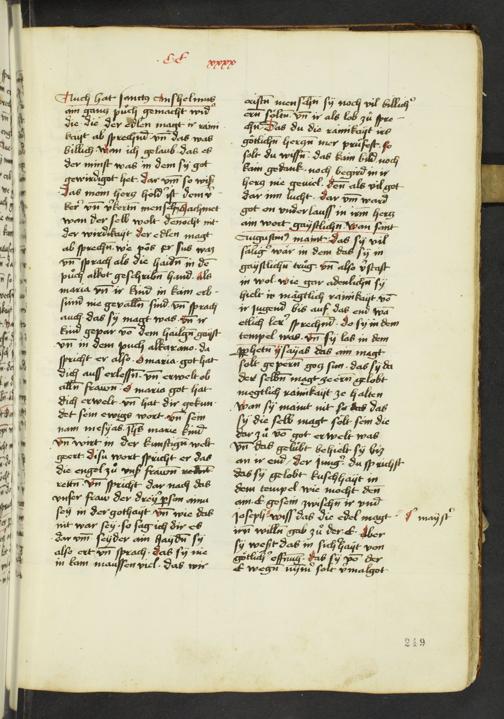 CC xxxx
Auch hat sanctus Anshelmus
ain gancz puch gemacht wid
die die der edlen magt ir rain
kayt ab sprechend vn das was
billich wan ich gelaub das es
der minst was in dem sy got
gewirdigot het dar vm so wiß
das mein hercz hold ist den v
ker vn vkertn menschn machmet
wan der selb wolt dennocht nit
der wirdikayt der edlen magt
ab sprechn wie pös er sus was
vn sprach als die haidn in de
puch alkot geschribn hand als
maria vn ir kind in kain erb
sünd nie gevallen sind vn sprach
auch das sy magt was vn ir
kind gepar vo dem hailgn gayst
vn in dem puch alkarano da
spricht er also O maria got hat
dich auf erlesn vn erwelt ob
alln frawn O maria got hat
dich erwelt vn hat dir gekun
det sein ewigs wort vn sein
nam mesyas Jhs marie kind
vn wirt in der kunftign welt
geert disu wort spricht er das
die engel zu vnß frawn
retn vn spricht dar nach das
vnser fraw der drey pson ainu
sey in der gothayt vn wie das
nit war sey so sag ich dir es
dar vm seyder ain haydn sy
also ert vn sprach das sy nie
in kain maussen viel das wir
cristn menschn sy noch vil billich
ern soltn vn ir als lob zu spre
chn das du die rainikayt irs
götlichn herczn mer prüfest so
solt du wissn das kain bild noch
kain gedank noch begird in ir
hercz nie geviel den als vil got
dar inn lucht dar vm ward
got on vnderlauss in irm hercz
am wort gaystlichn wan sant
Augustinus maint das sy vil
sälig wär in dem das sy in
gaystlichn trüg vn also vstast
in wol wie gar adenlichn sy
hielt ir mägtlich rainikayt vo
ir jugend bis auf das end wa
etlich ler sprechend do sy in dem
tempel was vn sy las in dem
pphetn ysayas das ain magt
solt gepern gotz sun das sy da
der selbn magt ze ern gelobt
megtlich rainikayt ze halten
wan sy maint nit das
sy die selb magt solt sein die
dar zu vo got erwelt was
vn das gelübt behielt sy bis
an ir end der jung du sprichst
das sy gelobt kuschhayt in
dem tempel wie mocht den
ain E gesein zwischn ir vnd
Joseph wiss das die edel magt
irn willn gab zu der E Aber
sy west das in sichhayt von
götlich offnung das sy vo der
E wegn nymer solt vmalgot
mayst
249